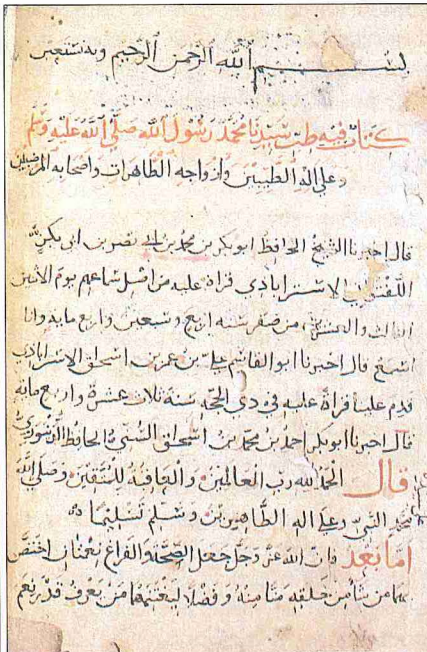 بسم الله الرحمن الرحيم وبه نستعين
كتاب فيه طب سيدنا محمد رسول الله صلى الله عليه وسلم
وعلى اله الطيبين وازواجه الطاهرات واصحابه
قال اخبرنا الشيخ الحافظ ابو بكر بن محمد بن ابي نصر بن ابي بكر
الاستراباذي قراة عليه من اصل سماعهم يوم الاثنين
الثالث والعشرين من صفر سنه اربع وسبعين واربع مايه وانا
اسمع قال اخبرنا ابو القاسم علي بن عمر بن اسحاق الاستراباذي
قدم علينا قراة عليه في ذي الحجه سنة ثلاث عشرة واربع مايه
قال اخبرنا ابو بكر احمد بن محمد بن اسحاق السني الحافظ الدينوري
قال الحمد لله رب العالمين والعاقبة للمتقين وصلى الله
محمد النبي وعلى اله الطاهرين وسلم تسليما
اما بعد فان الله عز وجل جعل الصحة والفراغ نعمتان اختص
بهما من شا من خلقه منا منه وفضلا ليغتنمهما من يعرف قدر نعم